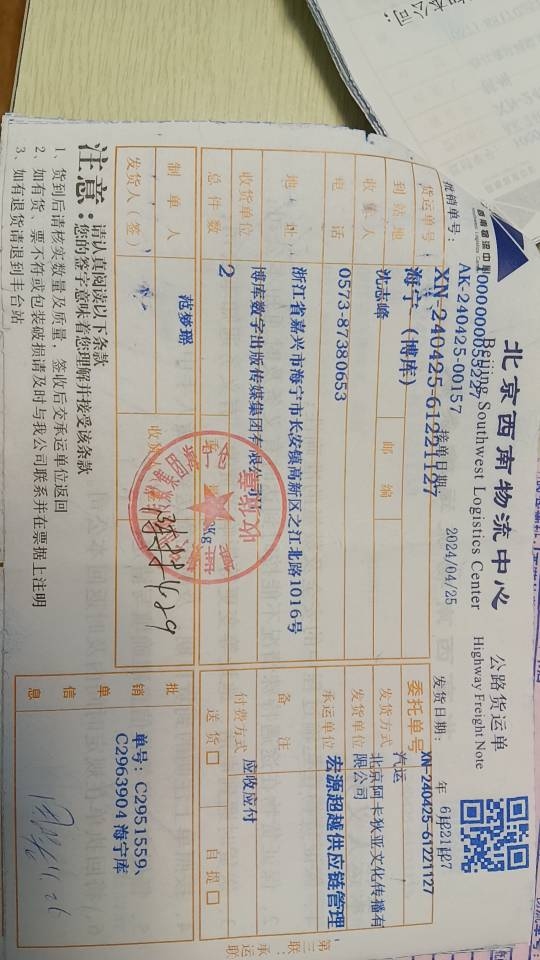 北京西南物流中心
Beijing Southwest Logistics Center
公路货运单
Highway Freight Note
0000000055227
批销单号：
AK-240425-00157
接单日期
2024/04/25
发货日期：
年
货运单号
XN-240425-61221127
委托单号
XN-240425-61221127
到站地
海宁（博库）
发货方式
汽运
收货人
沈志峰
邮编
发货单位
北京阿卡狄亚文化传播有
限公司
电话
0573-87380653
承运单位
宏源超越供应链管理
地址
浙江省嘉兴市海宁市长安镇高新区之江北路1016号
备注
收货单位
博库数字出版传媒集团有限公司
付费方式
应收应付
总件数
2
送货□
自提□
制单人
范梦瑶
发货人（签）
收货
批销单信息
单号：C2951559、
C2963904 海宁库
注意：
请认真阅读以下条款
您的签字意味着您理解并接受该条款
1、货到后请核实数量及质量，签收后交承运单位返回
2、如有货、票不符或包装破损请及时与我公司联系并在票据上注明
3、如有退货请退到丰台站
第三联：承运联